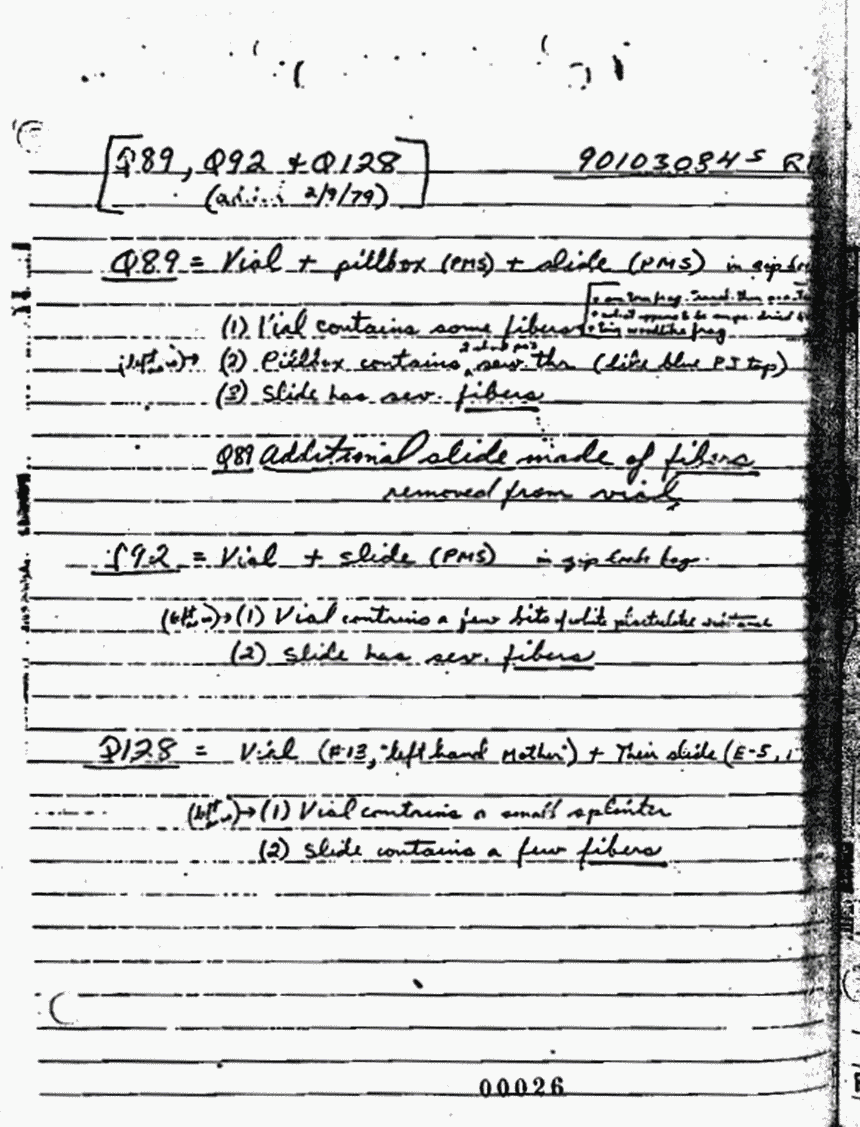 Q89, Q92 + Q128
90103034 S
2/9/79)
Q89 = Vial + pillbox (PMS) + slide (PMS) in zip
(1) Vial contains some fibers
(2) Pillbox contains sev. thr (like blue PJ top)
(3) Slide has sev. fibers
Q89 Additional slide made of fibers
removed from vial
Q92 = Vial + slide (PMS) in zip lock bag.
(1) Vial contains a few bits of white
(2) Slide has sev. fibers
Q128 = Vial (#13, "left hand Mother") + Their slide (E-5,
(1) Vial contains a small splinter
(2) Slide contains a few fibers
00026